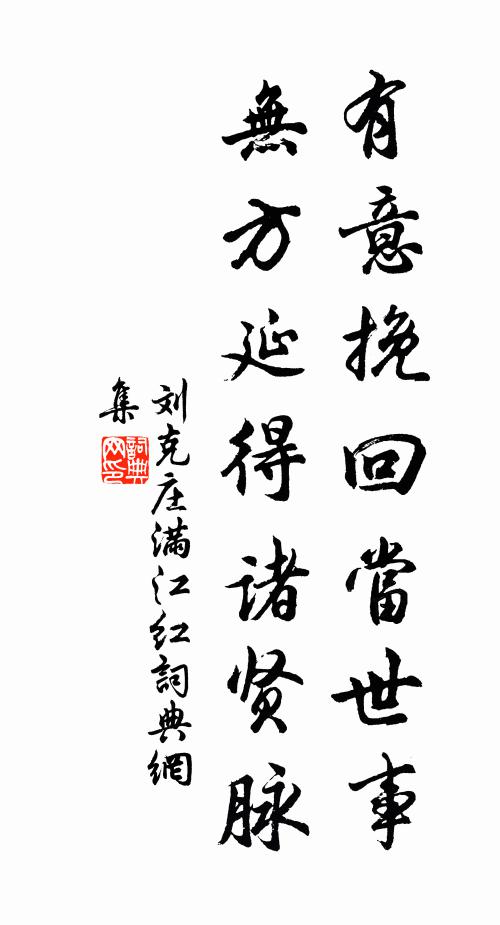 有意挽回當世事
無方延得诸贤脉
刘克庄满江红詞典網
集
詞典网印